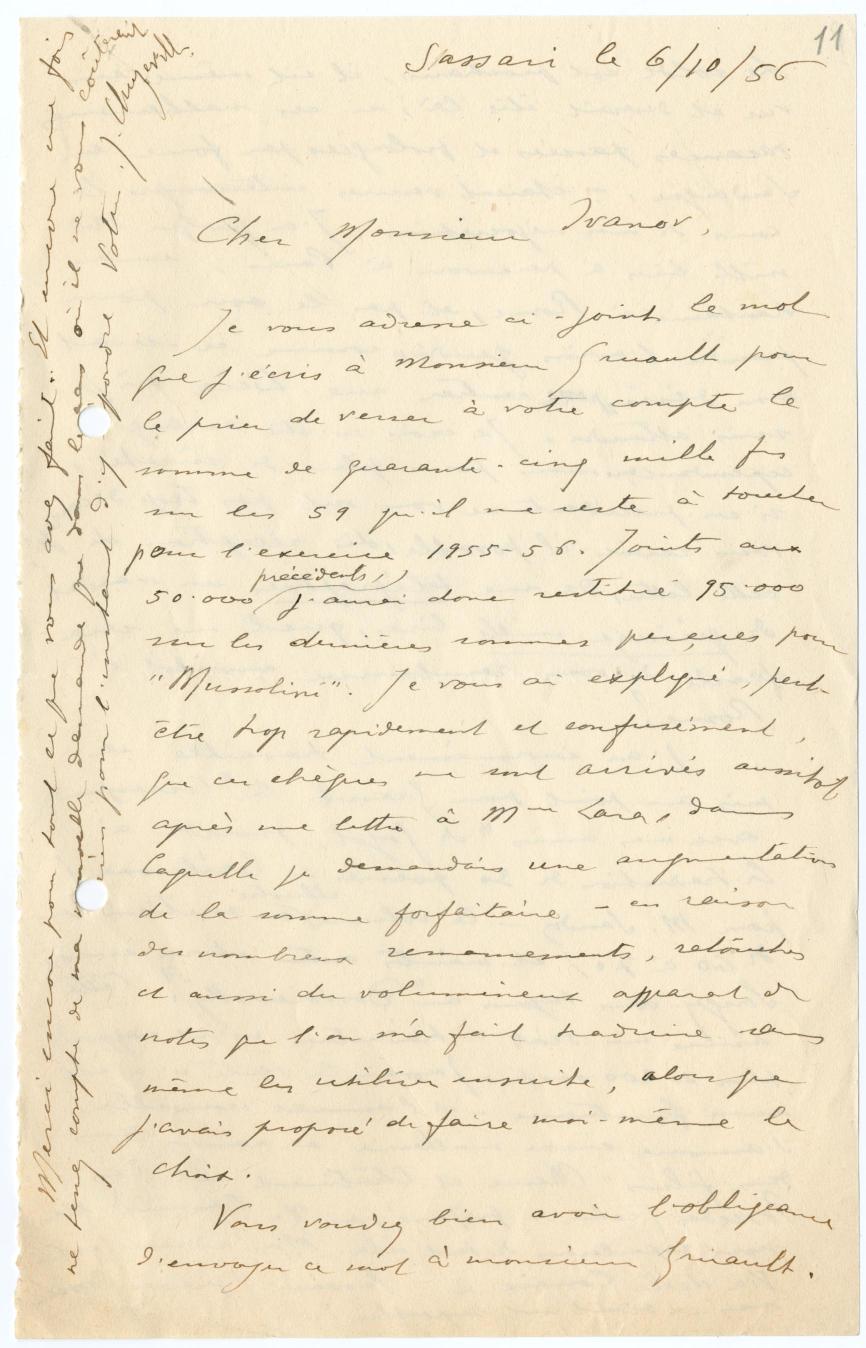 11
Sassari le 6/10/56
Cher Monsieur Ivanov,
Je vous adresse ci-joint le mot
que j'écris à Monsieur Gruault pour
le prier de verser à votre compte la
somme de quarante-cinq mille frs
sur les 59 qu'il me reste à toucher
pour l'exercice 1955-56. Joints aux
précédents,
50.000 j'aurai donc restitué 95.000
sur les dernières sommes perçues pour
"Mussolini". Je vous ai expliqué, peut-
être trop rapidement et confusément,
que ces chèques me sont arrivés aussitôt
après une lettre à Mme Lara, dans
laquelle je demandais une augmentation
de la somme forfaitaire – en raison
des nombreux remaniements, retouches
et aussi du volumineux apparat de
notes que l'on m'a fait traduire sans
même les utiliser ensuite, alors que
j'avais proposé de faire moi-même le
choix.
Vous voudrez bien avoir l'obligeance
d'envoyer ce mot à monsieur Gruault.
Merci encore pour tout ce que vous avez fait. Et encore une fois
ne tenez compte de ma nouvelle demande que dans le cas où il ne vous coûterait
rien pour l'instant d'y répondre Votre J.